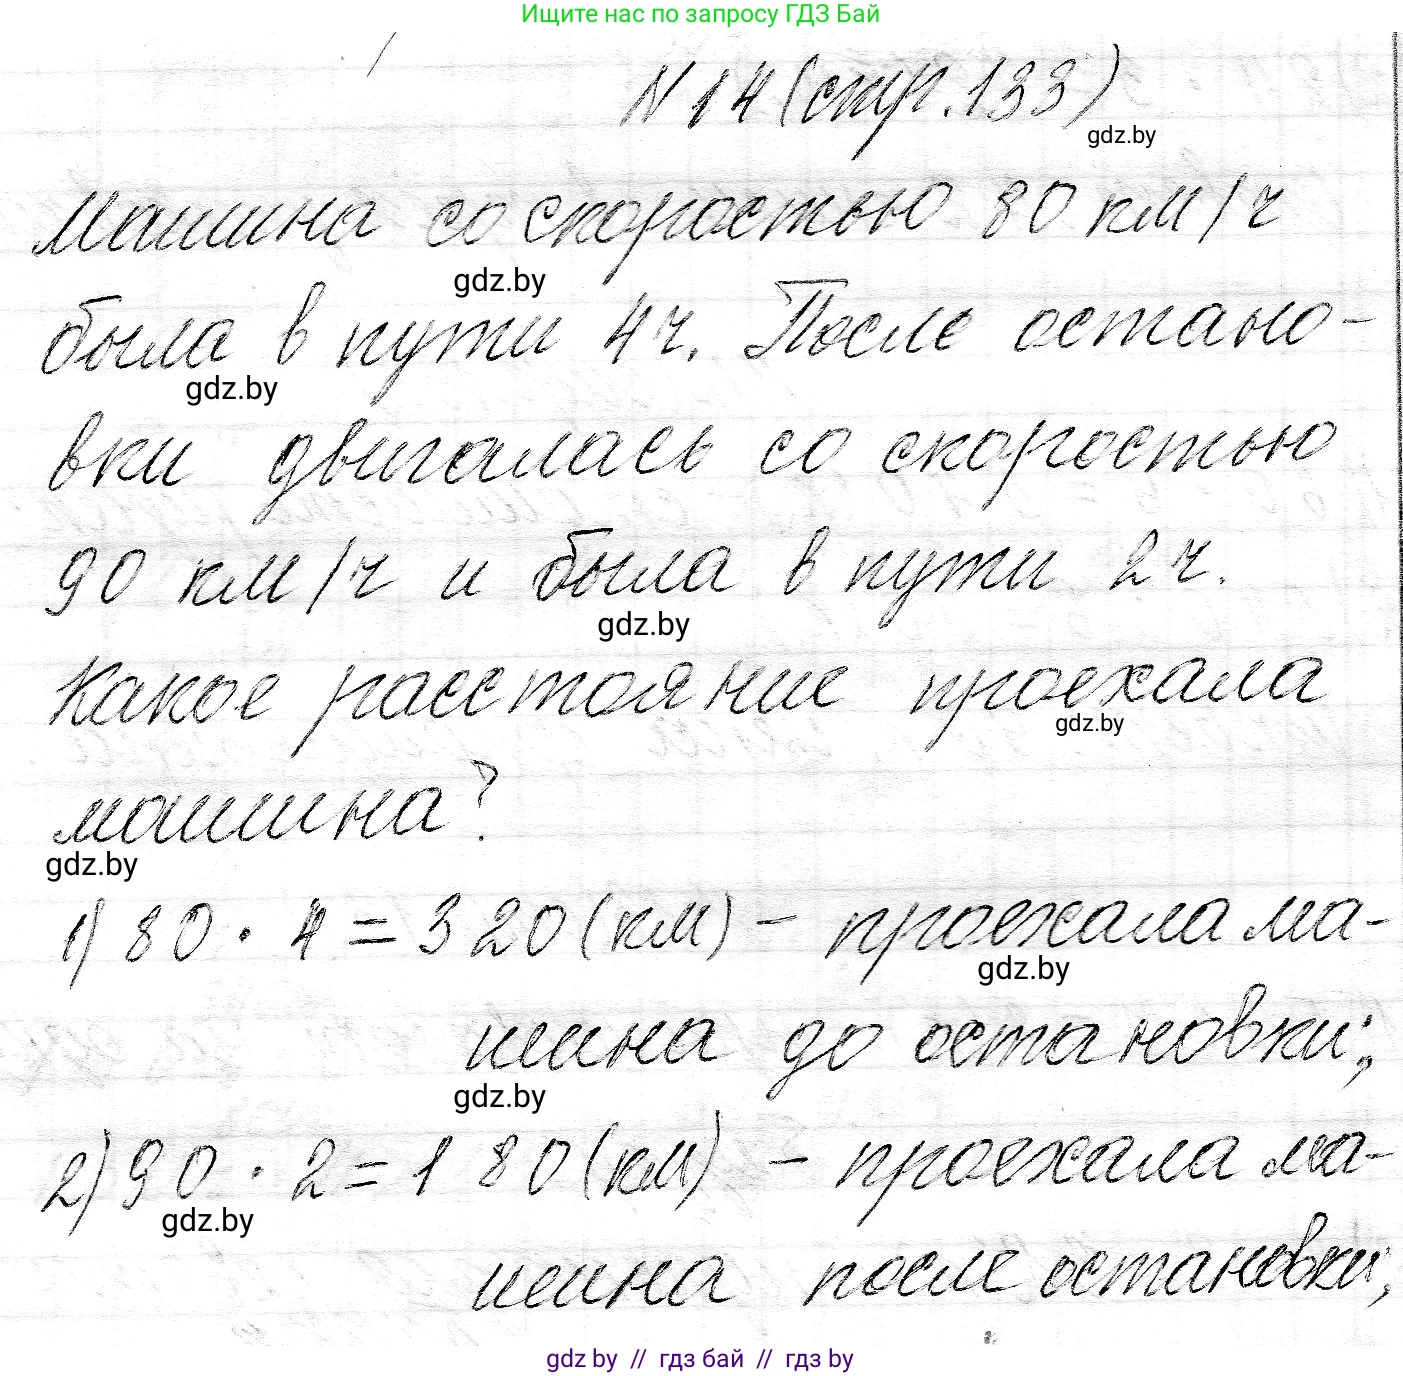 Ищите нас по запросу ГДЗ Бай
N 14 (стр. 133)
gdz.by
Машина со скоростью 80 км/ч
gdz.by
была в пути 4 ч. После остано-
gdz.by
вки двигалась со скоростью
90 км/ч и была в пути 2 ч.
gdz.by
Какое расстояние проехала
gdz.by
машина?
gdz.by
1) 80 · 4 = 320 (км) – проехала ма-
gdz.by
шина до остановки;
gdz.by
2) 90 · 2 = 180 (км) – проехала ма-
gdz.by
шина после остановки;
gdz by // гдз бай // гдз by